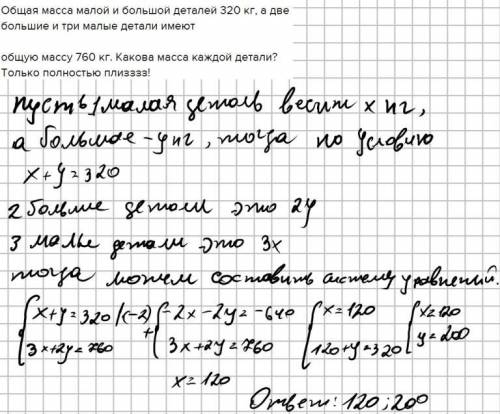 Общая масса малой и большой деталей 320 кг, а две
большие и три малые детали имеют
общую массу 760 кг. Какова масса каждой детали?
Только полностью плизззз!
пусть 1 малая деталь весит x кг,
а большая - y кг, тогда по условию
x+y=320
2 больше детали это 2y
3 малые детали - это 3x
тогда можем составить систему уравнений.
{x+y=320 |(-2) + {-2x-2y=-640 {x=120 {x=120
{3x+2y=760 {3x+2y=760 {120+y=320 {y=200
x=120
Ответ: 120; 200